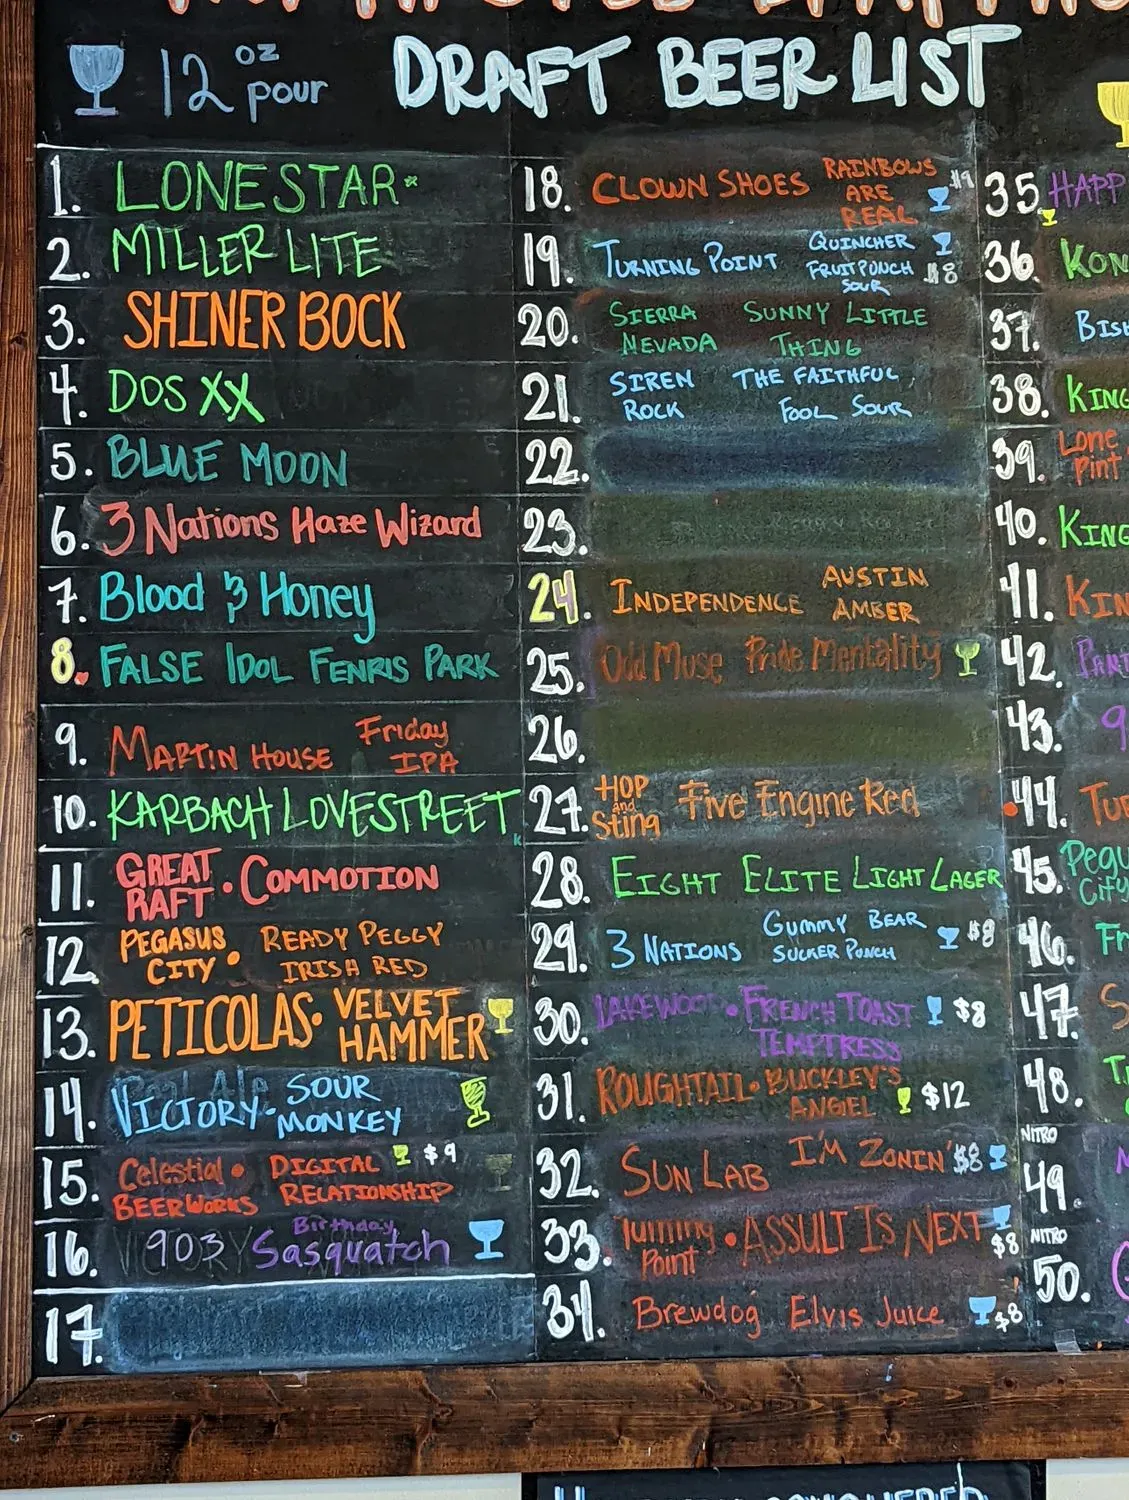 12 oz pour
DRAFT BEER LIST
1. LONESTAR
2. MILLER LITE
3. SHINER BOCK
4. DOS XX
5. BLUE MOON
6. 3 Nations Haze Wizard
7. Blood & Honey
8. FALSE IDOL FENRIS PARK
9. MARTIN HOUSE Friday IPA
10. KARBACH LOVESTREET
11. GREAT RAFT • COMMOTION
12. PEGASUS CITY • READY PEGGY IRISH RED
13. PETICOLAS • VELVET HAMMER
14. VICTORY • SOUR MONKEY
15. Celestial • BEERWORKS DIGITAL RELATIONSHIP $9
16. 903 Birthday Sasquatch
17.
18. CLOWN SHOES RAINBOWS ARE REAL $9
19. TURNING POINT QUINCHER FRUITPUNCH SOUR $8
20. SIERRA NEVADA SUNNY LITTLE THING
21. SIREN ROCK THE FAITHFUL FOOL SOUR
22.
23.
24. INDEPENDENCE AUSTIN AMBER
25. Odd Muse Pride Mentality
26.
27. HOP and Sting Five Engine Red
28. EIGHT ELITE LIGHT LAGER
29. 3 NATIONS GUMMY BEAR SUCKER PUNCH $8
30. LAKEWOOD • FRENCH TOAST TEMPTRESS $8
31. ROUGHTAIL • BUCKLEY'S ANGEL $12
32. SUN LAB I'M ZONIN' $8
33. Turning Point • ASSULT IS NEXT $8
34. Brewdog Elvis Juice $8
35. HAPP
36. KON
37. BISH
38. KING
39. Lone Pint
40. KING
41. KIN
42.
43. 9
44. TU
45. Pegu City
46. Fr
47. S
48. T
NITRO
49.
NITRO
50.